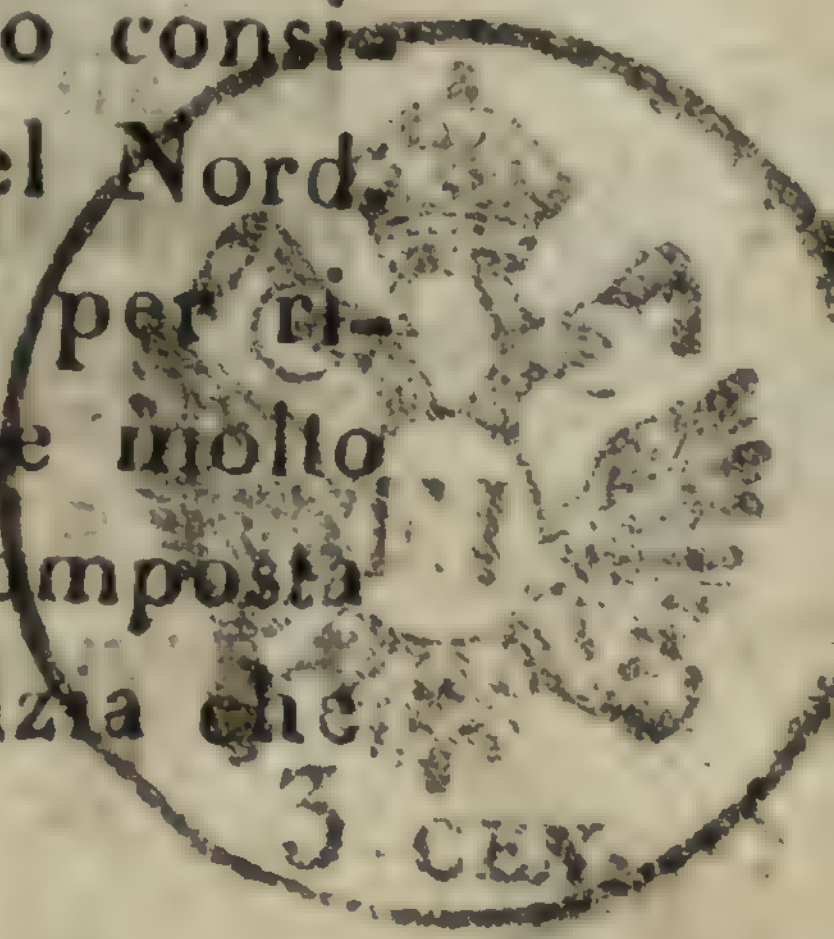 o consi-
el Nord-
per ri-
e molto
omposta
izia che
3 CEN